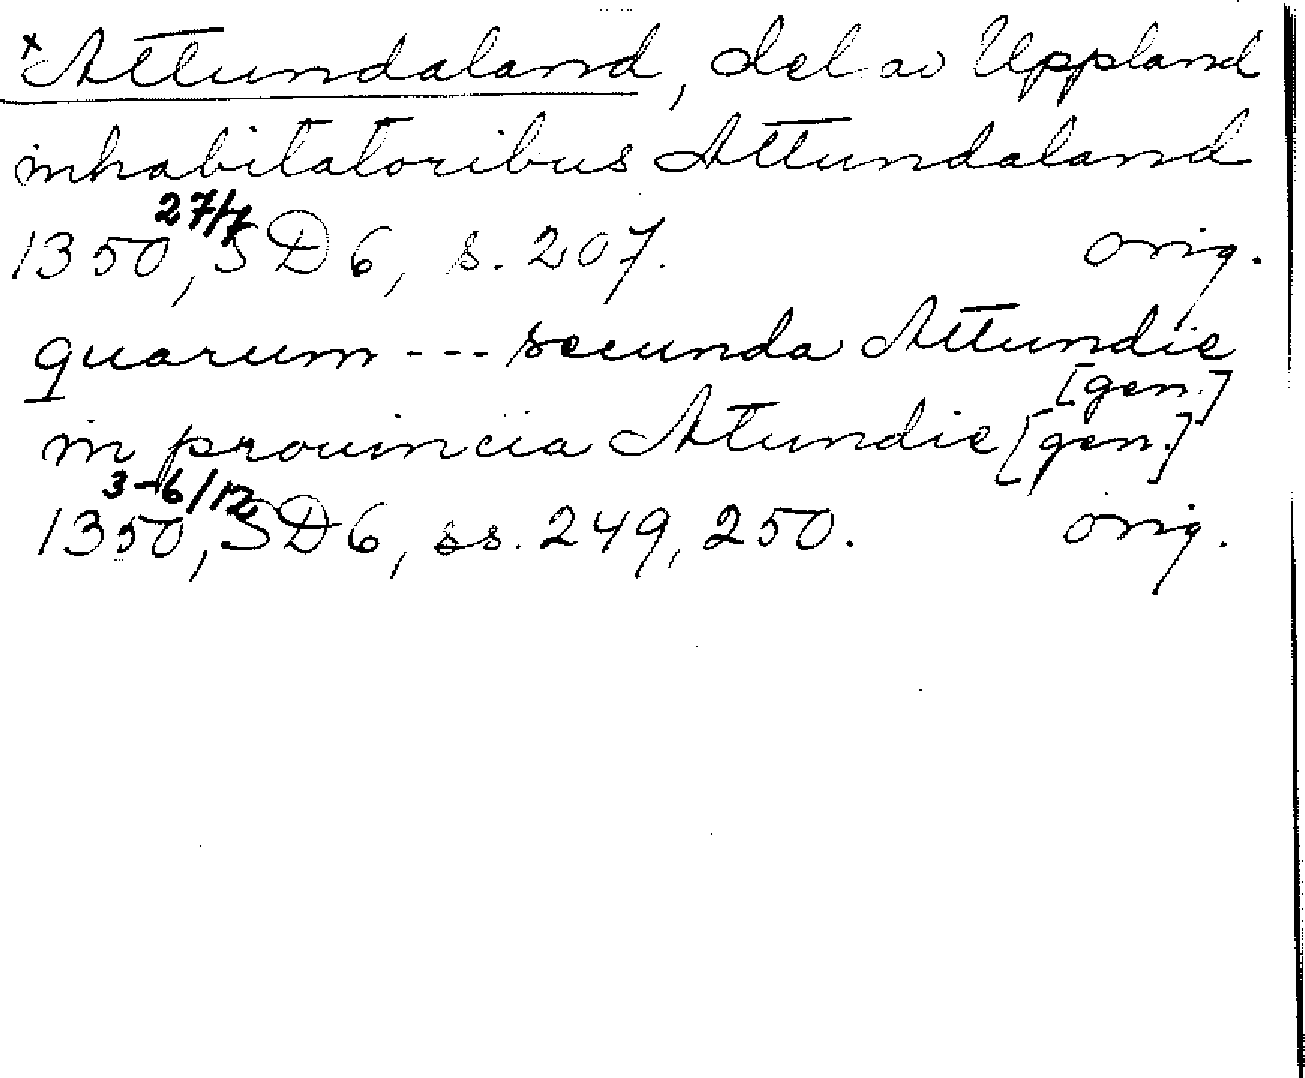 ×Attundaland, del av Uppland
inhabitatoribus Attundaland
1350 27/7, SD 6, s. 207. orig.
quarum --- secunda Attundie
[gen.]
in prouincia Atundie [gen.]
1350 3-6/12, SD 6, ss. 249, 250. orig.